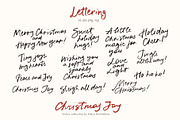 Lettering
Merry Christmas
and
Happy New Year!
Sweet
Holiday
hugs!
A little
Christmas
magic for
you
Holiday
Cheer!
Tiny joys
big hearts
Wishing you
a soft and
sparkly
Christmas
Love
and
Light
Jingle
bells
Peace and Joy
Ho ho ho!
Christmas Joy
Sleigh all day!
Merry
Christmas!
Christmas Joy